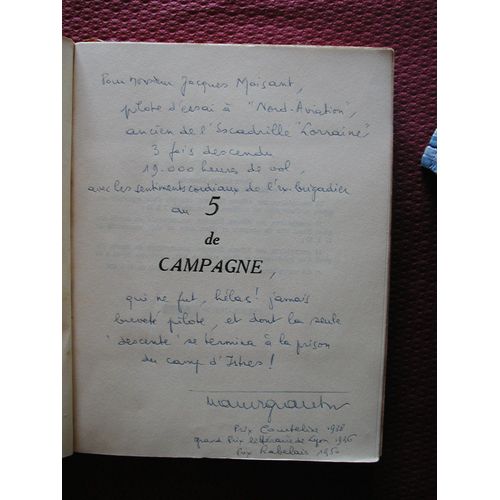 Pour Monsieur Jacques Maisant,
pilote d'essai à "Nord-Aviation",
ancien de l'Escadrille "Lorraine"
3 fois descendu
19.000 heures de vol,
avec les sentiments cordiaux de l'ex-brigadier
au 5
de
CAMPAGNE,
qui ne fut, hélas! jamais
breveté pilote, et dont la seule
"descente" se termina à la prison
du camp d'Istres!
Prix Courteline 1938
grand Prix littéraire de Lyon 1946
Prix Rabelais 1950